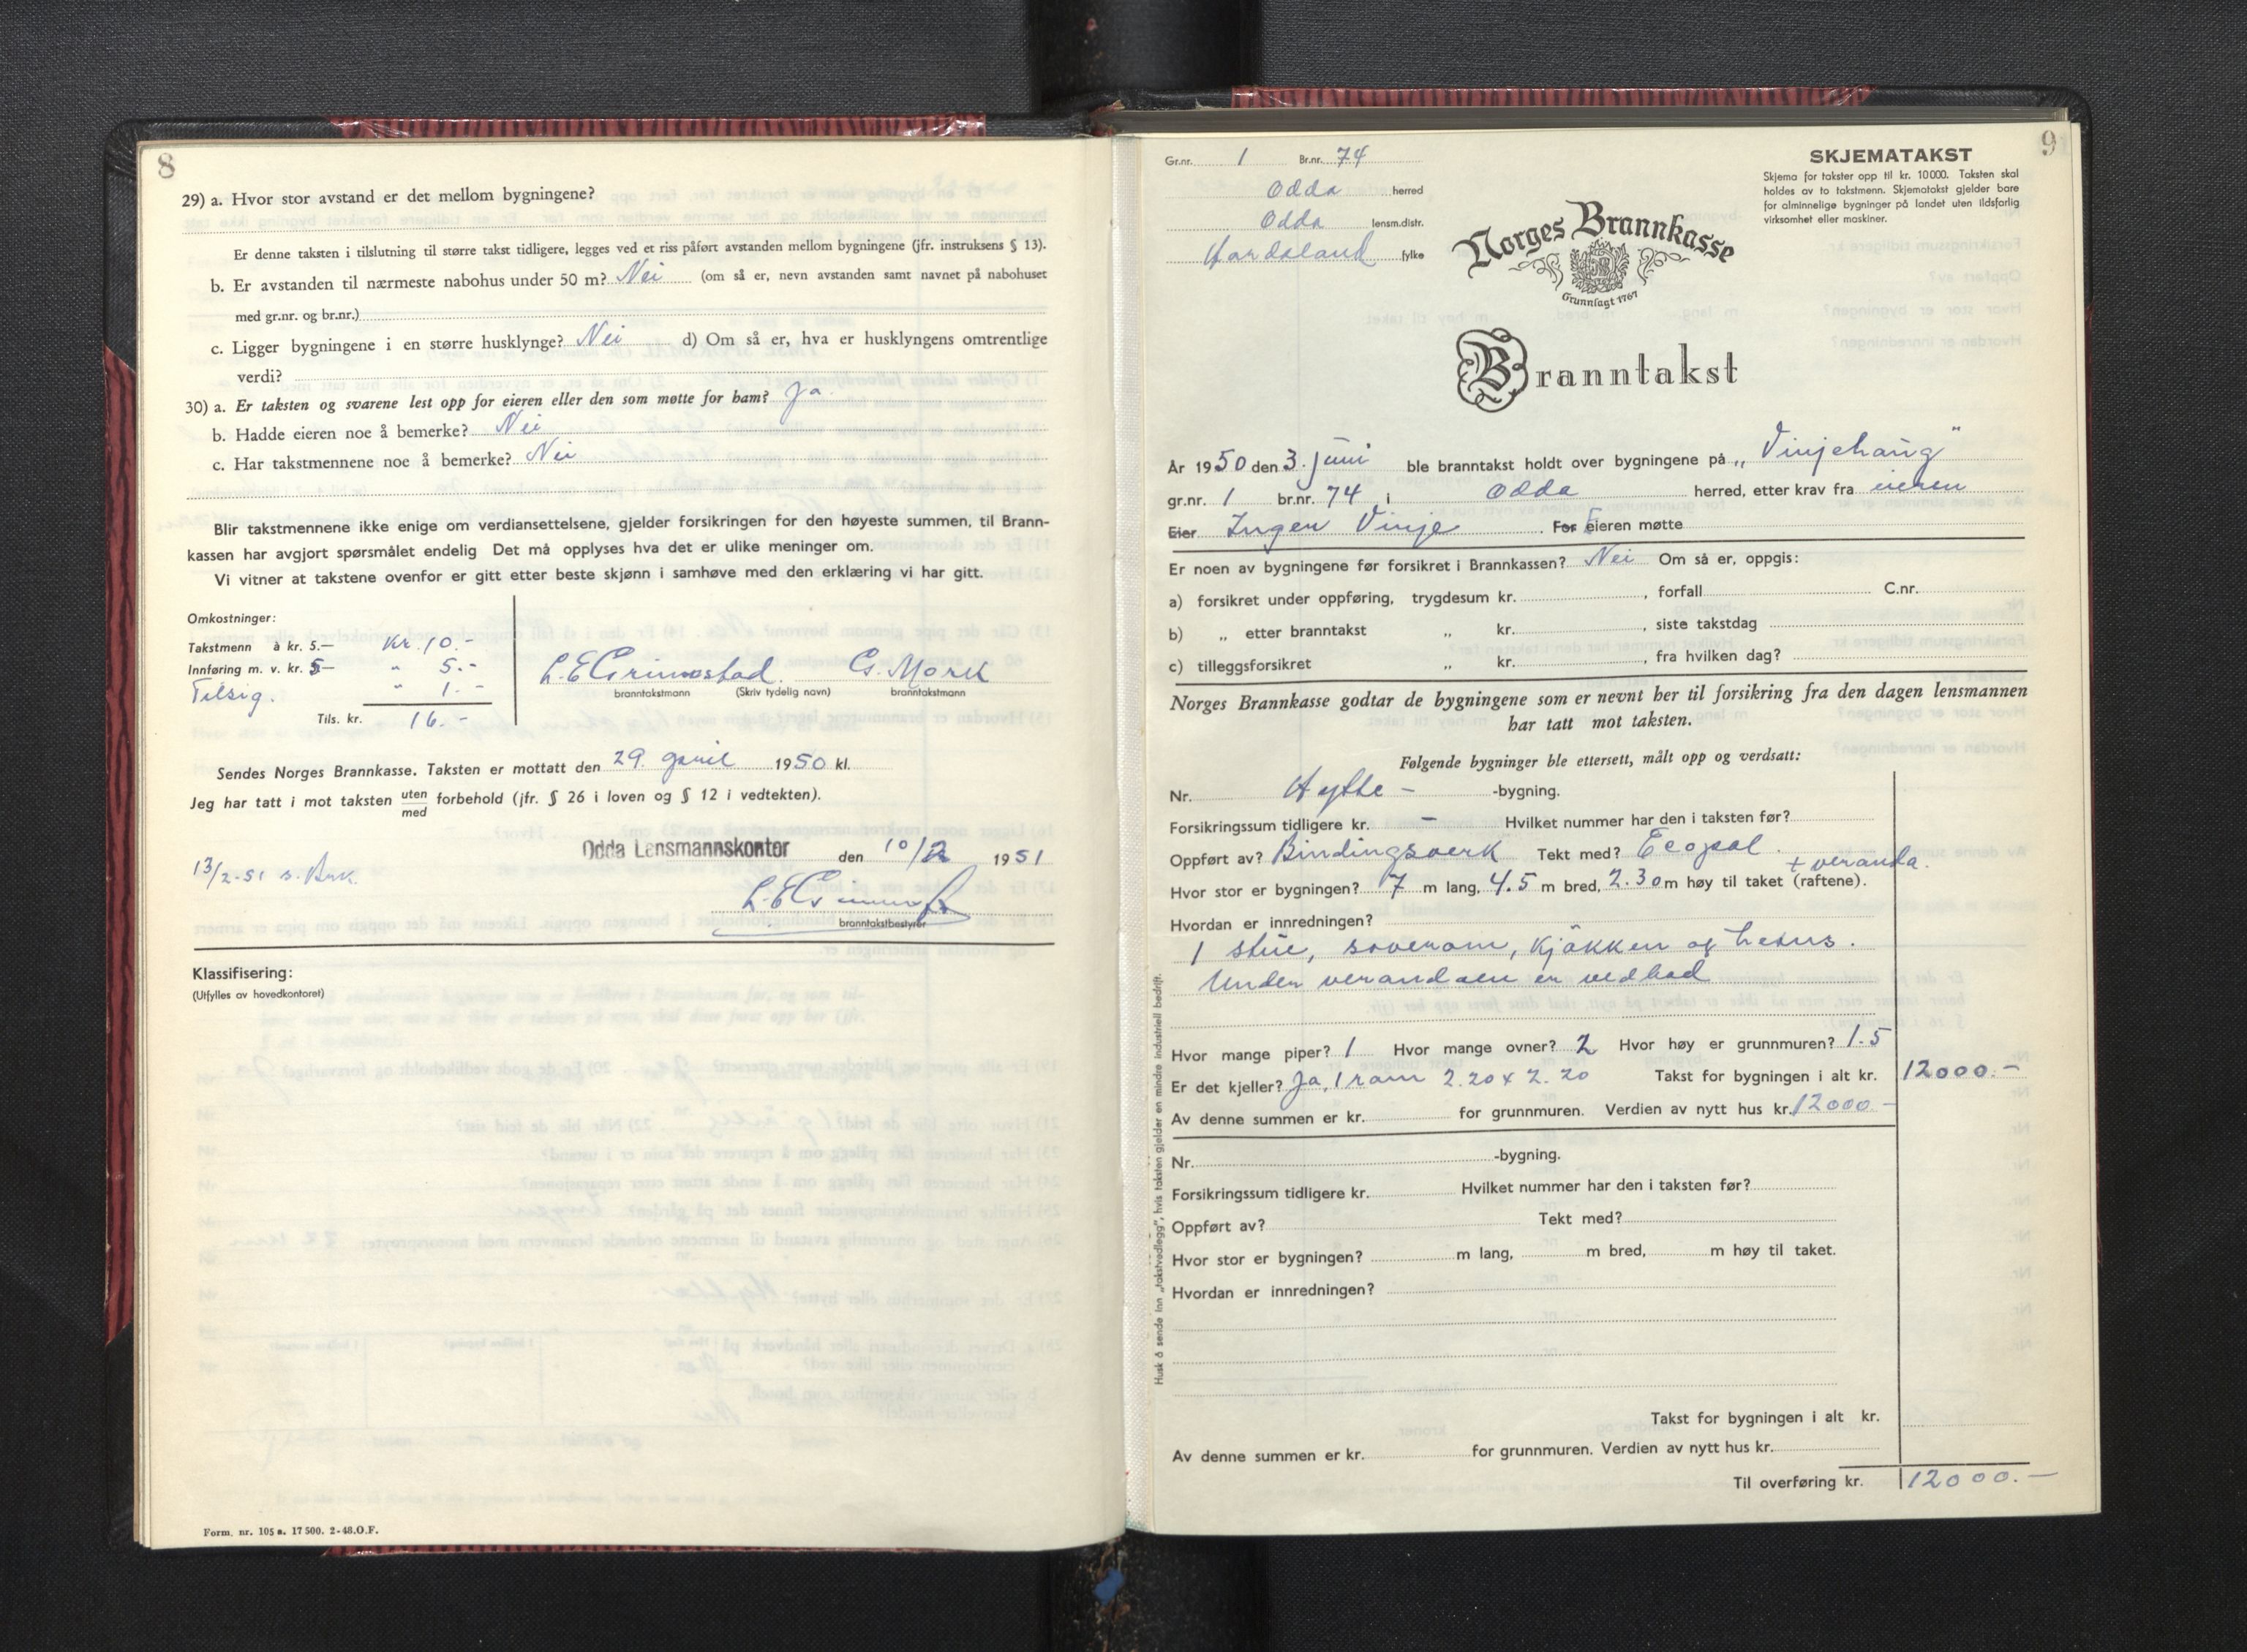 8
29) a. Hvor stor avstand er det mellom bygningene?
Er denne taksten i tilslutning til større takst tidligere, legges ved et riss påført avstanden mellom bygningene (jfr. instruksens § 13).
b. Er avstanden til nærmeste nabohus under 50 m? Nei (om så er, nevn avstanden samt navnet på nabohuset
med gr.nr. og br.nr.)
c. Ligger bygningene i en større husklynge? Nei d) Om så er, hva er husklyngens omtrentlige
verdi?
30) a. Er taksten og svarene lest opp for eieren eller den som møtte for ham? Ja.
b. Hadde eieren noe å bemerke? Nei
c. Har takstmennene noe å bemerke? Nei
Blir takstmennene ikke enige om verdiansettelsene, gjelder forsikringen for den høyeste summen, til Brann-
kassen har avgjort spørsmålet endelig Det må opplyses hva det er ulike meninger om.
Vi vitner at takstene ovenfor er gitt etter beste skjønn i samhøve med den erklæring vi har gitt.
Omkostninger:
Takstmenn à kr. 5.— Kr. 10.-
Innføring m. v. kr. 5— " 5.-
Tilsig. " 1.-
Tils. kr. 16.-
L.E.Grimostad. G. Mork
branntakstmann (Skriv tydelig navn) branntakstmann
Sendes Norges Brannkasse. Taksten er mottatt den 29. april 1950 kl.
Jeg har tatt i mot taksten uten/med forbehold (jfr. § 26 i loven og § 12 i vedtekten).
Odda Lensmannskontor den 10/2 1951
13/2-51 s. Brk.
branntakstbestyrer
Klassifisering:
(Utfylles av hovedkontoret)
Form. nr. 105 a. 17 500. 2-48.O.F.
9
Gr.nr. 1 Br.nr. 74
Odda herred
Odda lensm.distr.
Hordaland fylke
SKJEMATAKST
Skjema for takster opp til kr. 10 000. Taksten skal
holdes av to takstmenn. Skjematakst gjelder bare
for alminnelige bygninger på landet uten ildsfarlig
virksomhet eller maskiner.
Norges Brannkasse
Grunnlagt 1767
Branntakst
År 1950 den 3. juni ble branntakst holdt over bygningene på „Vinjehaug"
gr.nr. 1 br.nr. 74 i Odda herred, etter krav fra eieren
Eier Inger Vinje. For Eieren møtte
Er noen av bygningene før forsikret i Brannkassen? Nei Om så er, oppgis:
a) forsikret under oppføring, trygdesum kr. , forfall C.nr.
b) „ etter branntakst „ kr. , siste takstdag
c) tilleggsforsikret „ kr. , fra hvilken dag?
Norges Brannkasse godtar de bygningene som er nevnt her til forsikring fra den dagen lensmannen
har tatt mot taksten.
Følgende bygninger ble ettersett, målt opp og verdsatt:
Nr. Hytte - -bygning.
Forsikringssum tidligere kr. - Hvilket nummer har den i taksten før?
Oppført av? Bindingsverk Tekt med? Ecopal.
+ veranda.
Hvor stor er bygningen? 7 m lang, 4.5 m bred, 2.30 m høy til taket (raftene).
Hvordan er innredningen?
1 stue, soverom, kjøkken og
Under verandaen er vedbod
Hvor mange piper? 1 Hvor mange ovner? 2 Hvor høy er grunnmuren? 1.5
Er det kjeller? Ja, 1 rom 2.20 x 2.20 Takst for bygningen i alt kr. 12000.-
Av denne summen er kr. for grunnmuren. Verdien av nytt hus kr. 12000-
Nr. -bygning.
Forsikringssum tidligere kr. Hvilket nummer har den i taksten før?
Oppført av? Tekt med?
Hvor stor er bygningen? m lang, m bred, m høy til taket.
Hvordan er innredningen?
Takst for bygningen i alt kr.
Av denne summen er kr. for grunnmuren. Verdien av nytt hus kr.
Til overføring kr. 12000.-
Husk å sende inn „takstvedlegg", hvis taksten gjelder en mindre industriell bedrift.